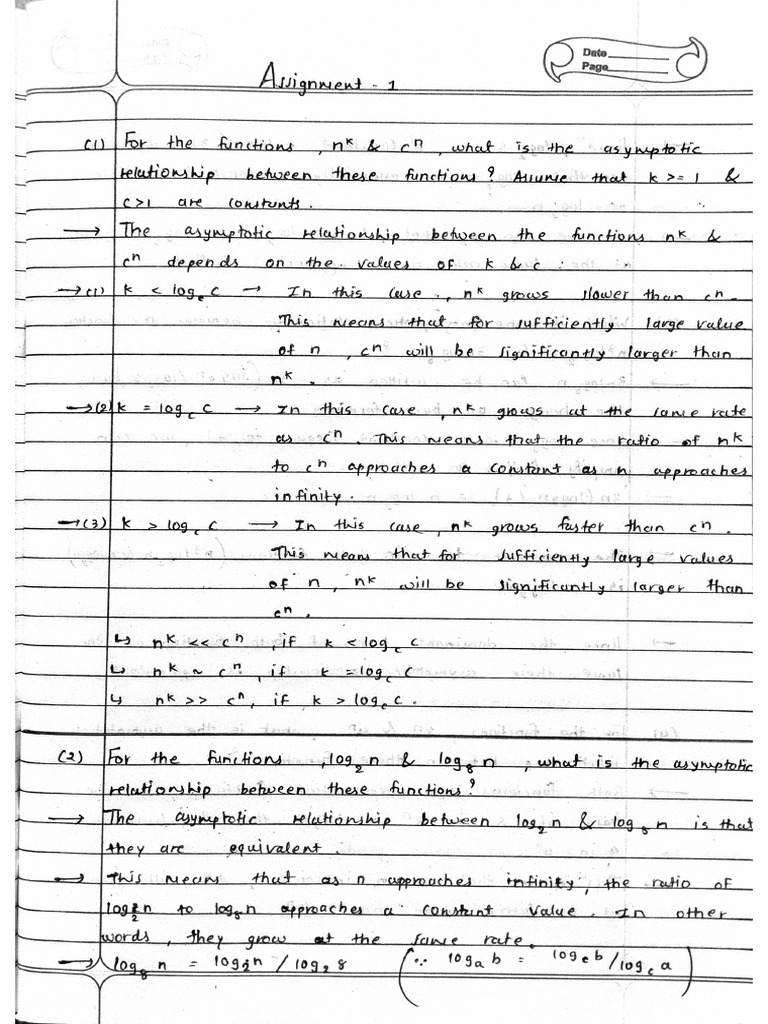 Date
Page
Assignment - 1
(1) For the functions, n^k & c^n, what is the asymptotic
relationship between these functions? Assume that k >= 1 &
c>1 are constants.
→ The asymptotic relationship between the functions n^k &
c^n depends on the values of k & c :
→ (1) k < log_c c → In this case, n^k grows slower than c^n.
This means that for sufficiently large value
of n, c^n will be significantly larger than
n^k.
→ (2) k = log_c c → In this case, n^k grows at the same rate
as c^n. This means that the ratio of n^k
to c^n approaches a constant as n approaches
infinity.
→ (3) k > log_c c → In this case, n^k grows faster than c^n.
This means that for sufficiently large values
of n, n^k will be significantly larger than
c^n.
↳ n^k << c^n, if k < log_c c
↳ n^k ~ c^n, if k = log_c c
↳ n^k >> c^n, if k > log_c c.
(2) For the functions, log_2 n & log_8 n, what is the asymptotic
relationship between these functions?
→ The asymptotic relationship between log_2 n & log_8 n is that
they are equivalent.
→ This means that as n approaches infinity, the ratio of
log_2 n to log_8 n approaches a constant value. In other
words, they grow at the same rate.
→ log_8 n = log_2 n / log_2 8 (∵ log_a b = log_c b / log_c a)